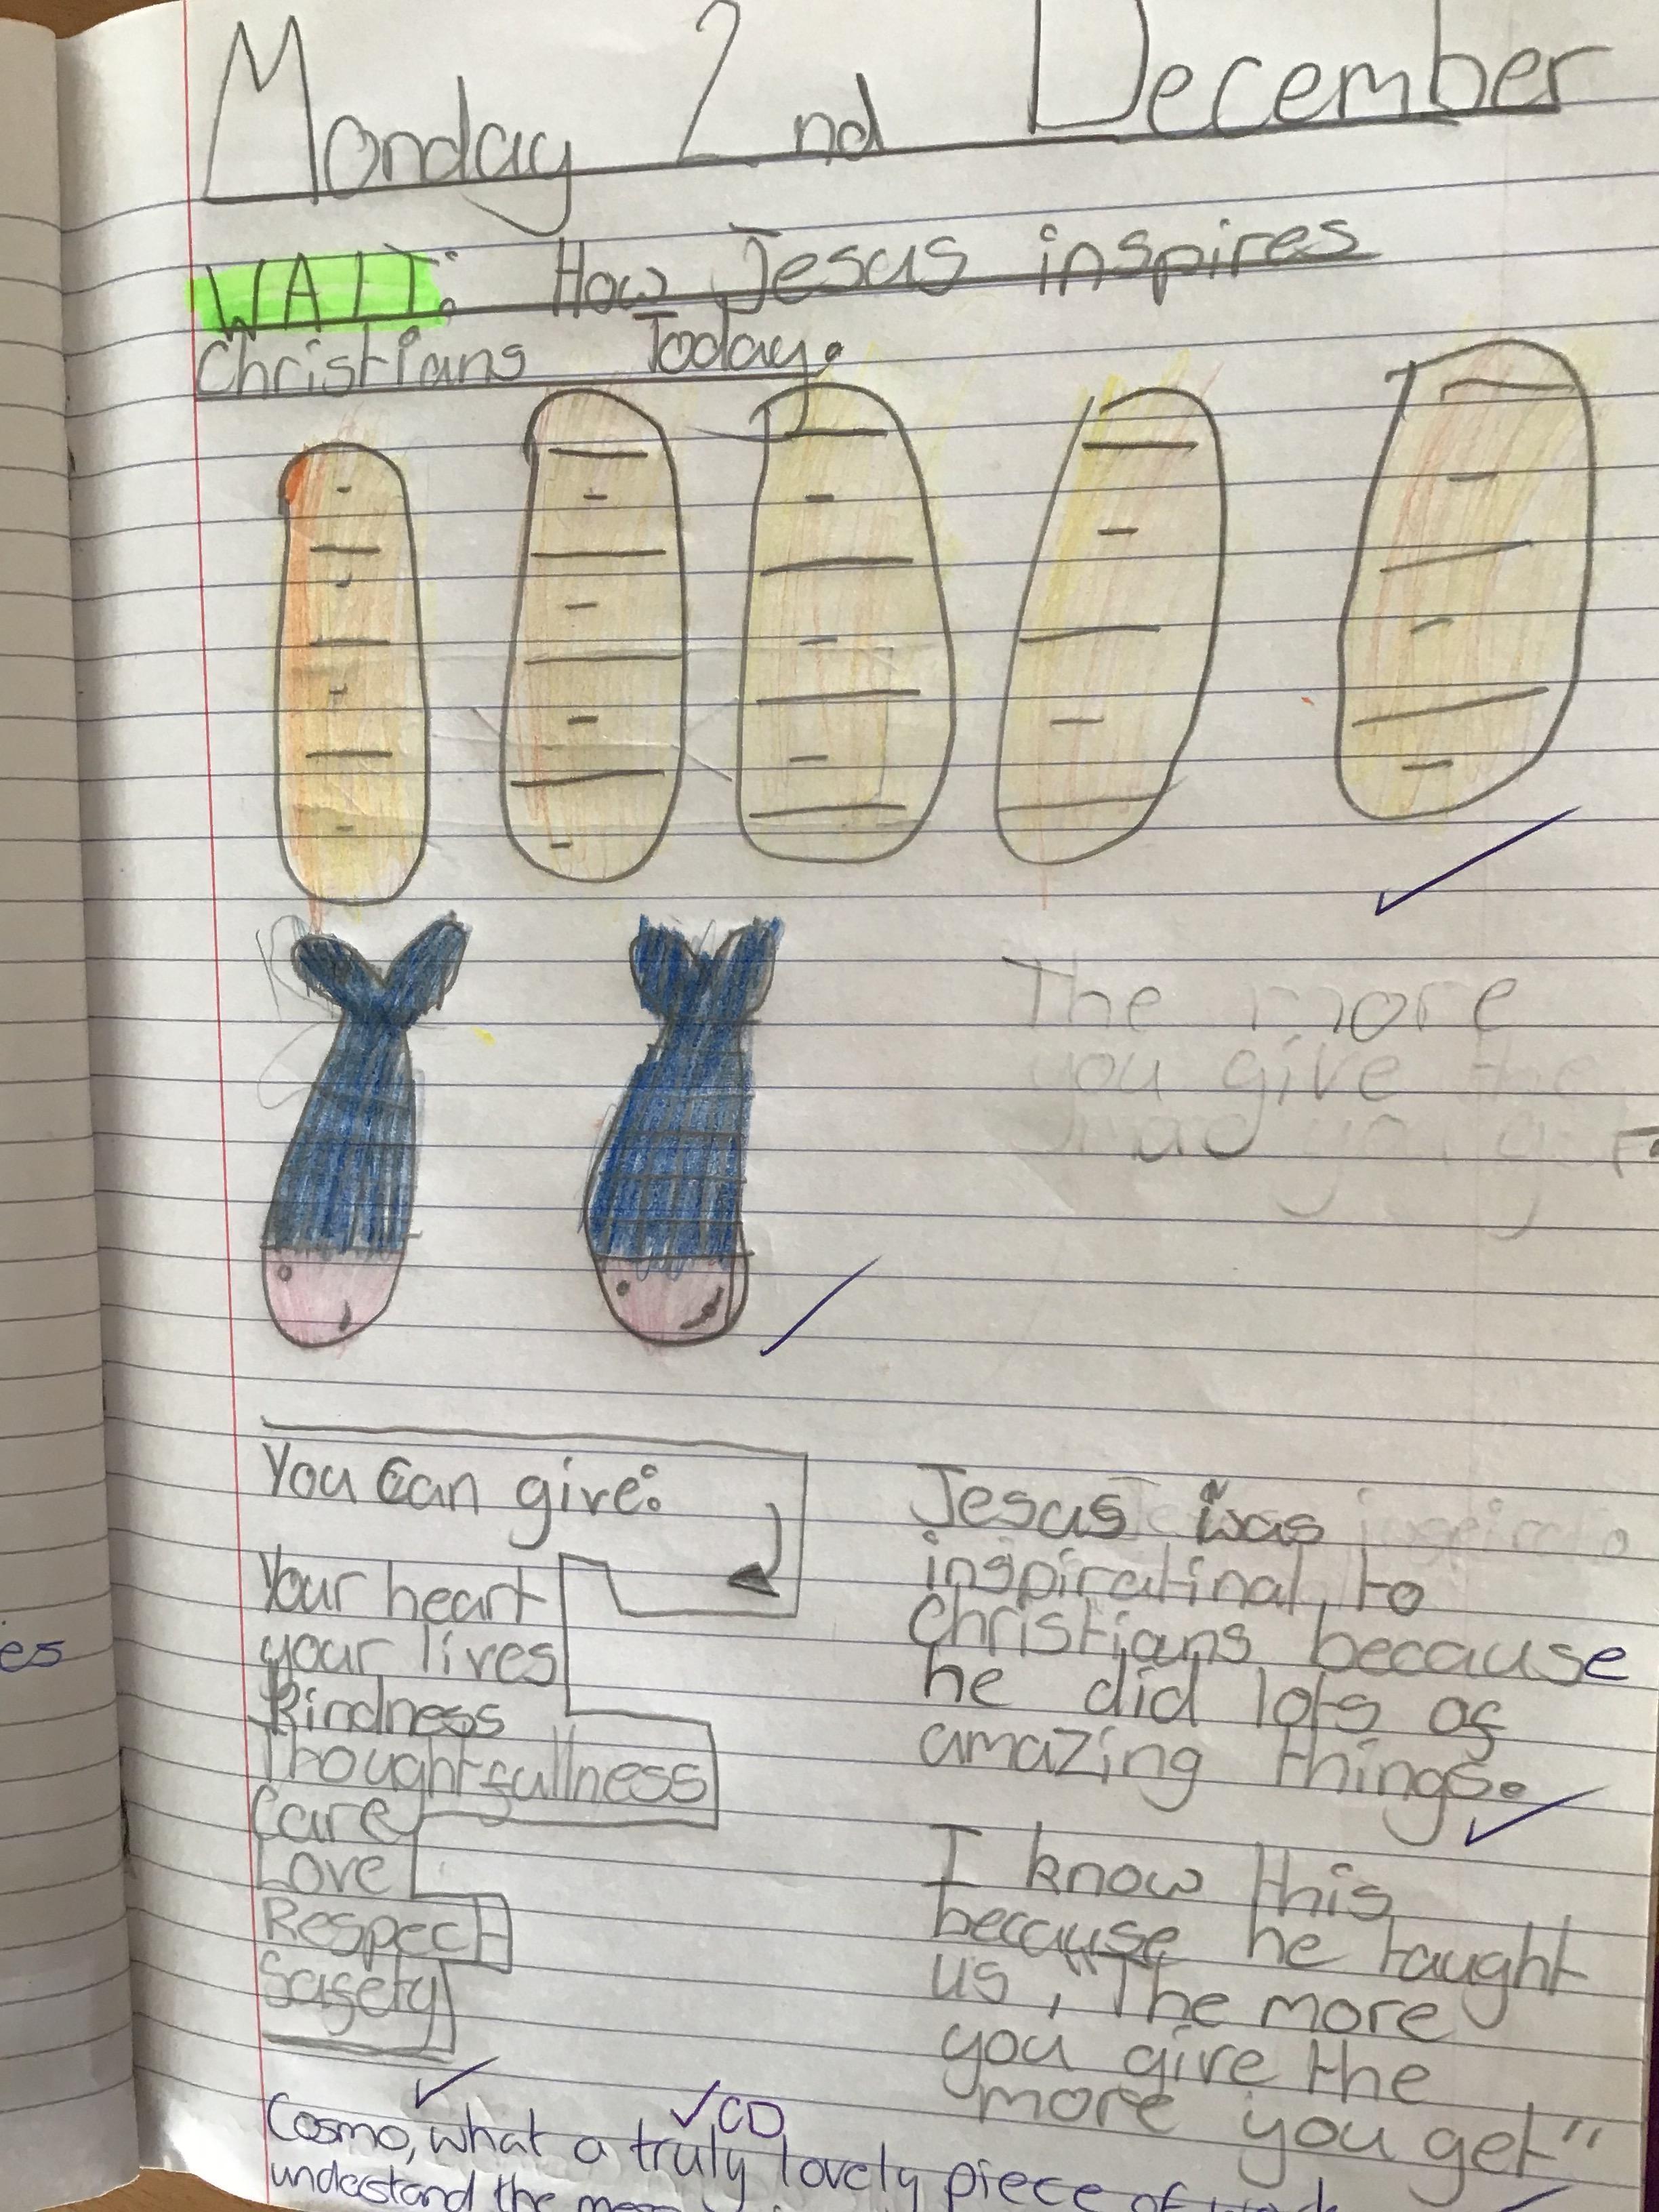 Monday 2nd December
WALT: How Jesus inspires
Christians Today.
The more
you give the
you
You Can give:
Your heart
your lives
Kindness
Thoughtfullness
Care
Love
Respect
Safety
Jesus was
inspiratinal to
Christians because
he did lots of
amazing things.
I know this
because he taught
us, "The more
you give the
more you get"
es
CD
Cosmo, what a truly lovely piece of work
understand the